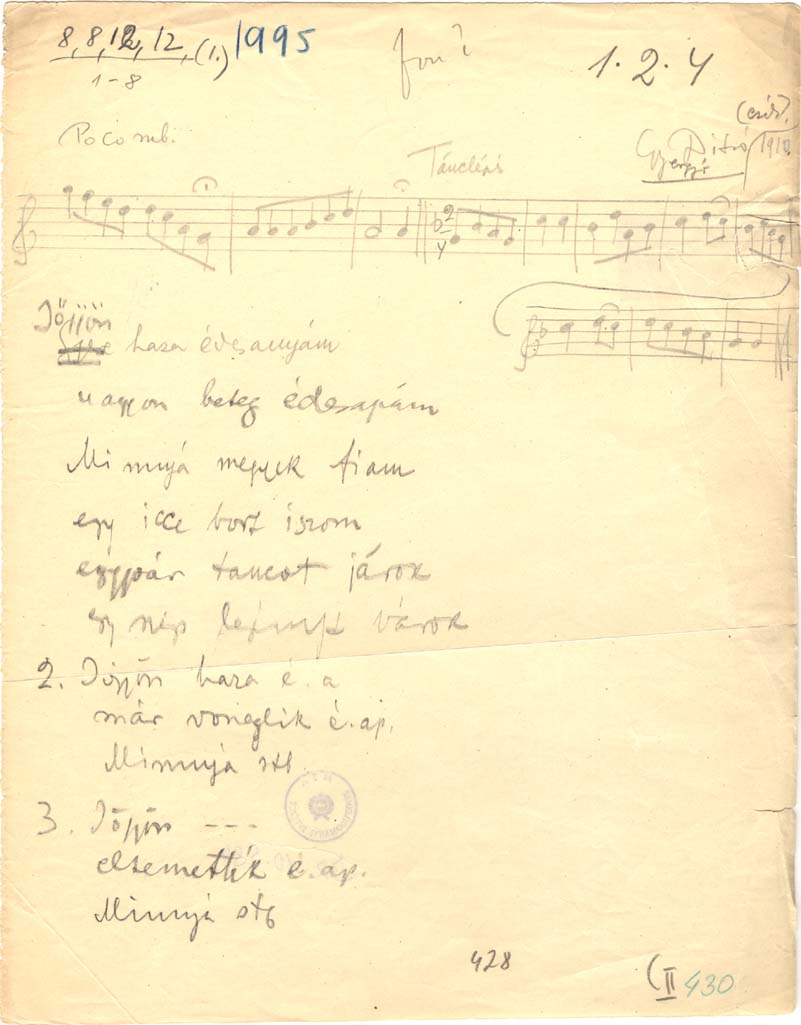 8, 8, 12, 12, (1.) 1995
1-8
1. 2. 4
Poco rub.
Tánclépés
Gyergyó Ditró (Csík), 1910.
Jőjjön haza édesanyám
nagyon beteg édesapám
Minnyá megyek fiam
egy icce bort iszom
egypár táncot járok
egy nép várok
2. Jőjjön haza é. a
már é. ap.
Minnyá stb
3. Jőjjön ---
eltemették é. ap.
Minnyá stb
428
(II 430